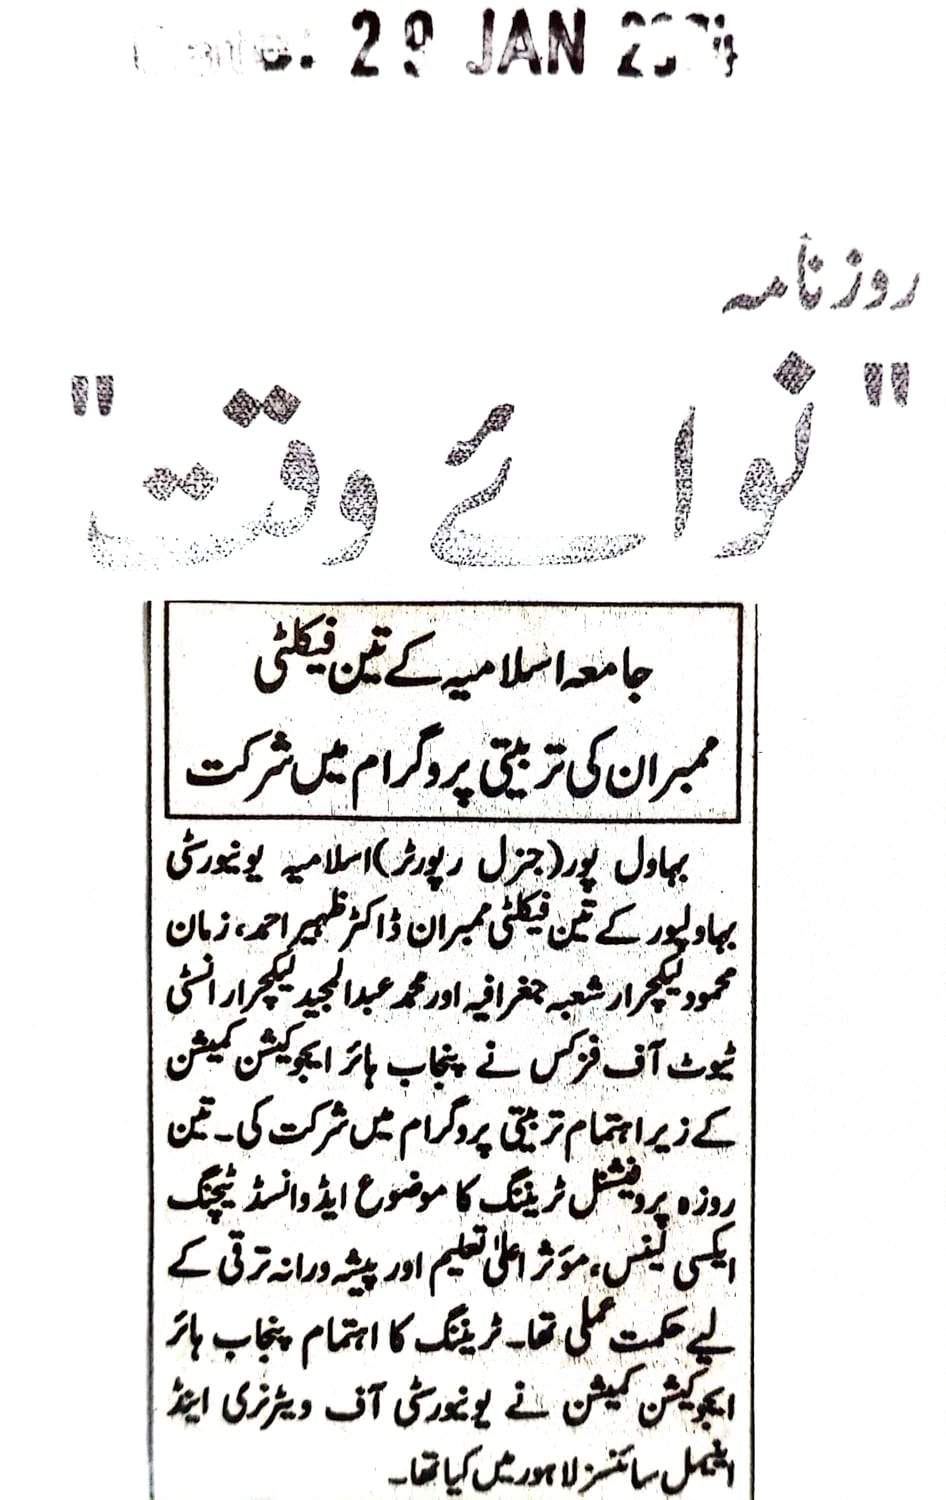 29 JAN
روزنامہ
"نوائے وقت"
جامعہ اسلامیہ کے تین فیکلٹی
ممبران کی تربیتی پروگرام میں شرکت
بہاول پور(جنرل رپورٹر)اسلامیہ یونیورسٹی
بہاولپور کے تین فیکلٹی ممبران ڈاکٹر ظہیر احمد، زمان
محمود لیکچرار شعبہ جغرافیہ اور محمد عبدالمجید لیکچرار انسٹی
ٹیوٹ آف فزکس نے پنجاب ہائر ایجوکیشن کمیشن
کے زیر اہتمام تربیتی پروگرام میں شرکت کی۔ تین
روزہ پروفیشنل ٹریننگ کا موضوع ایڈوانسڈ ٹیچنگ
ایکسی لینس، مؤثر اعلیٰ تعلیم اور پیشہ ورانہ ترقی کے
لیے حکمت عملی تھا۔ ٹریننگ کا اہتمام پنجاب ہائر
ایجوکیشن کمیشن نے یونیورسٹی آف ویٹرنری اینڈ
اینیمل سائنسز لاہور میں کیا تھا۔